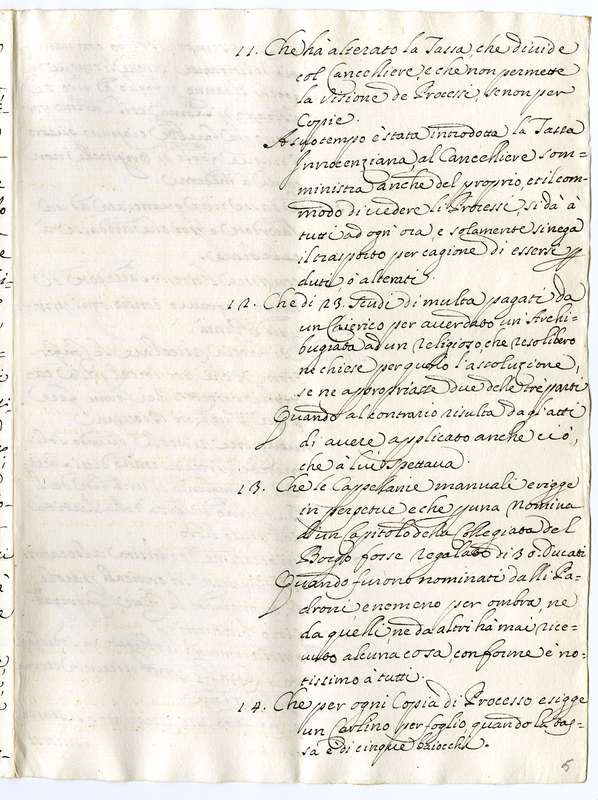 11. Che hà alterato la Tassa, che divide
col Cancelliere, e che non permette
la visione de Processi, se non per
Copie.
A suo tempo è stata introdotta la Tassa
Innocenziana, al Cancelliere som=
ministra anche del proprio, et il com=
modo di vedere li Processi, si dà à
tutti ad ogn'ora, e solamente si nega
il trasporto per cagione di essersi
duti, ò alterati.
12. Che di 23. Scudi di multa pagati da
un Chierico per aver dato un'Archi=
bugiata ad un Religioso, che reso libero
ne chiese per quello l'assoluzione,
se ne appropriasse due delle tre parti
Quando al contrario risulta dagl'atti
di avere applicato anche ciò,
che à lui spettava.
13. Che le Cappellanie manuali erigge
in perpetue e che p una Nomina
d'un Capitolo della Collegiata del
Borgo fosse regalato di 30. Ducati
Quando furono nominati dalli Pa=
droni, e nemeno per ombra, ne
da quelli, ne da altri hà mai rice=
vuto alcuna cosa, conforme è no=
tissimo à tutti.
14. Che per ogni Copia di Processo esigge
un Carlino per foglio, quando la tas=
sa è di cinque baiocchi.
5